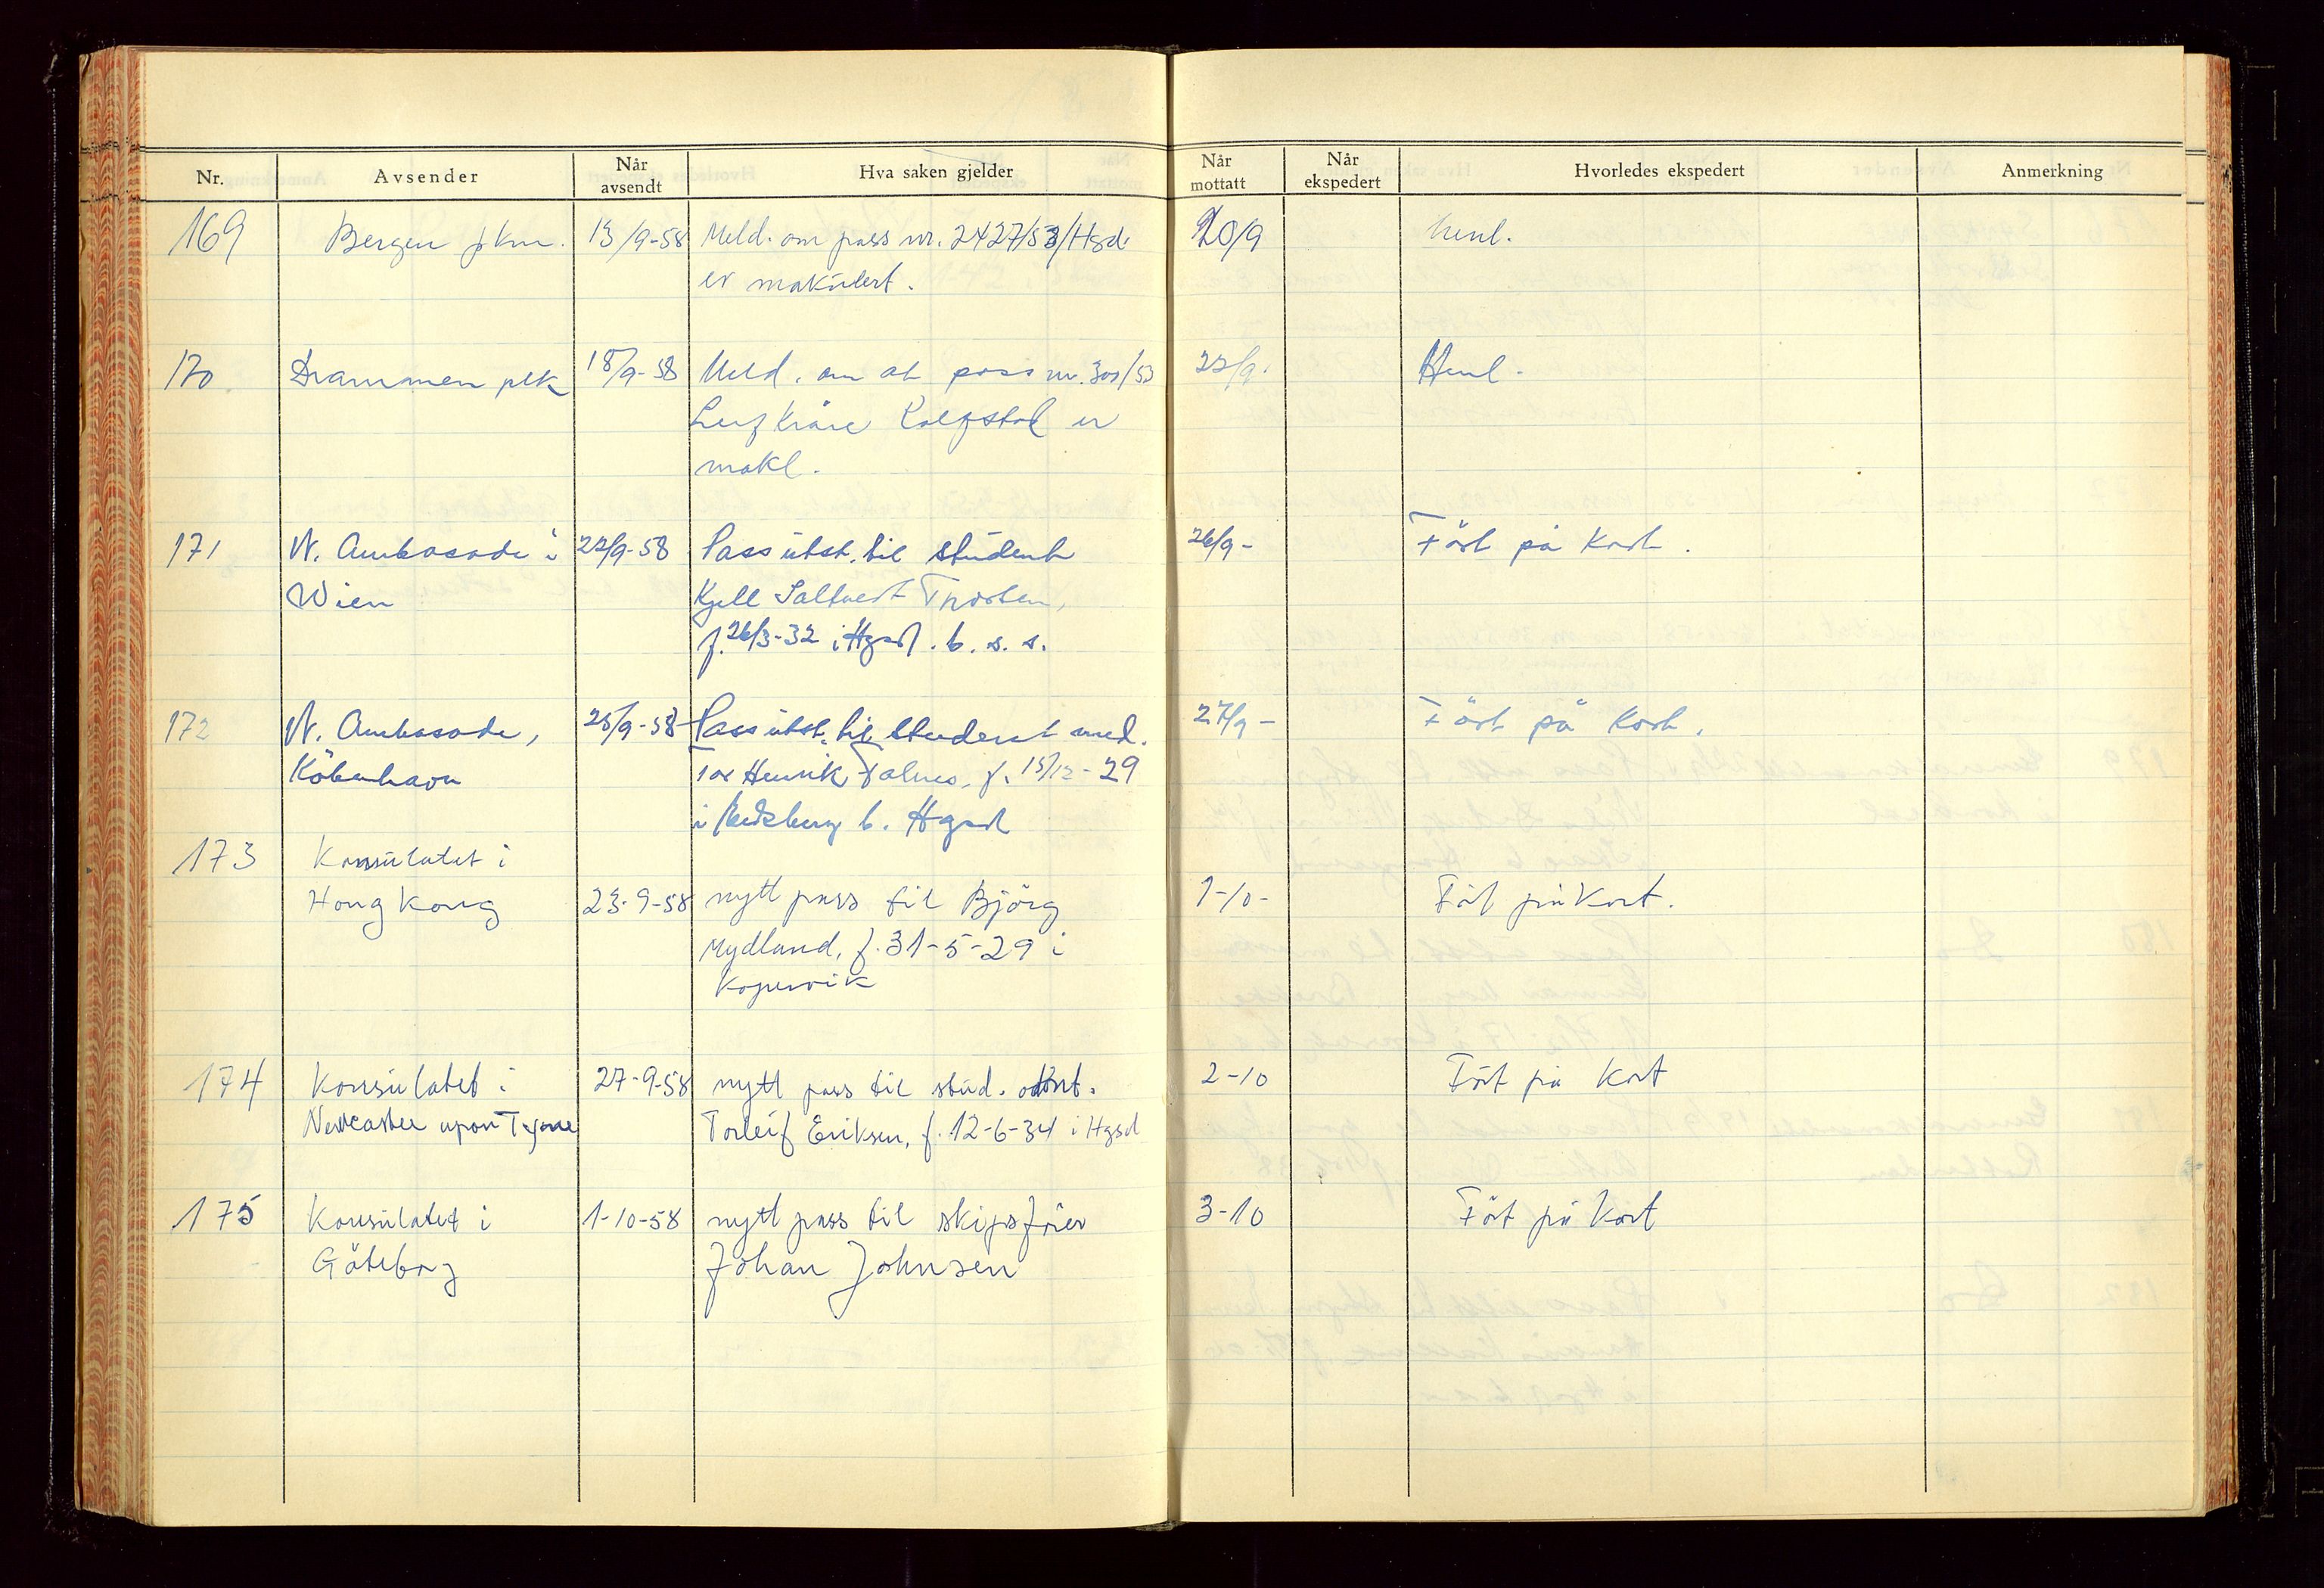 Nr. Avsender Når avsendt Hva saken gjelder Når mottatt Når ekspedert Hvorledes ekspedert Anmerkning
169 Bergen pkm. 13/9-58 Meld. om pass nr. 2427/53/Hgsd. 20/9 henl.
er makulert.
170 Drammen plk 18/9-58 Meld. om at pass nr. 309/53 22/9. Henl.
Kåre er
makl.
171 N. Ambasade i 22/9-58 Pass utst. til student 26/9- Fört på kort.
Wien Kjell Saltvedt
f. 26/3-32 i Hgsd. b. s. s.
172 N. Ambasade, 25/9-58 Pass utst. til student med. 27/9- Fört på kort.
Köbenhavn Tor Henrik f. 15/12-29
i b. Hgsd
173 Konsulatet i
Hong Kong 23-9-58 nytt pass til Björg 1-10- Fört på kort.
Mydland, f. 31-5-29 i
Kopervik
174 Konsulatet i 27-9-58 nytt pass til stud. odont. 2-10 Fört på kort
Newcastle upon Tyne Torleif Eriksen, f. 12-6-34 i Hgsd
175 Konsulatet i 1-10-58 nytt pass til skipsförer 3-10 Fört på kort
Göteborg Johan Johnsen